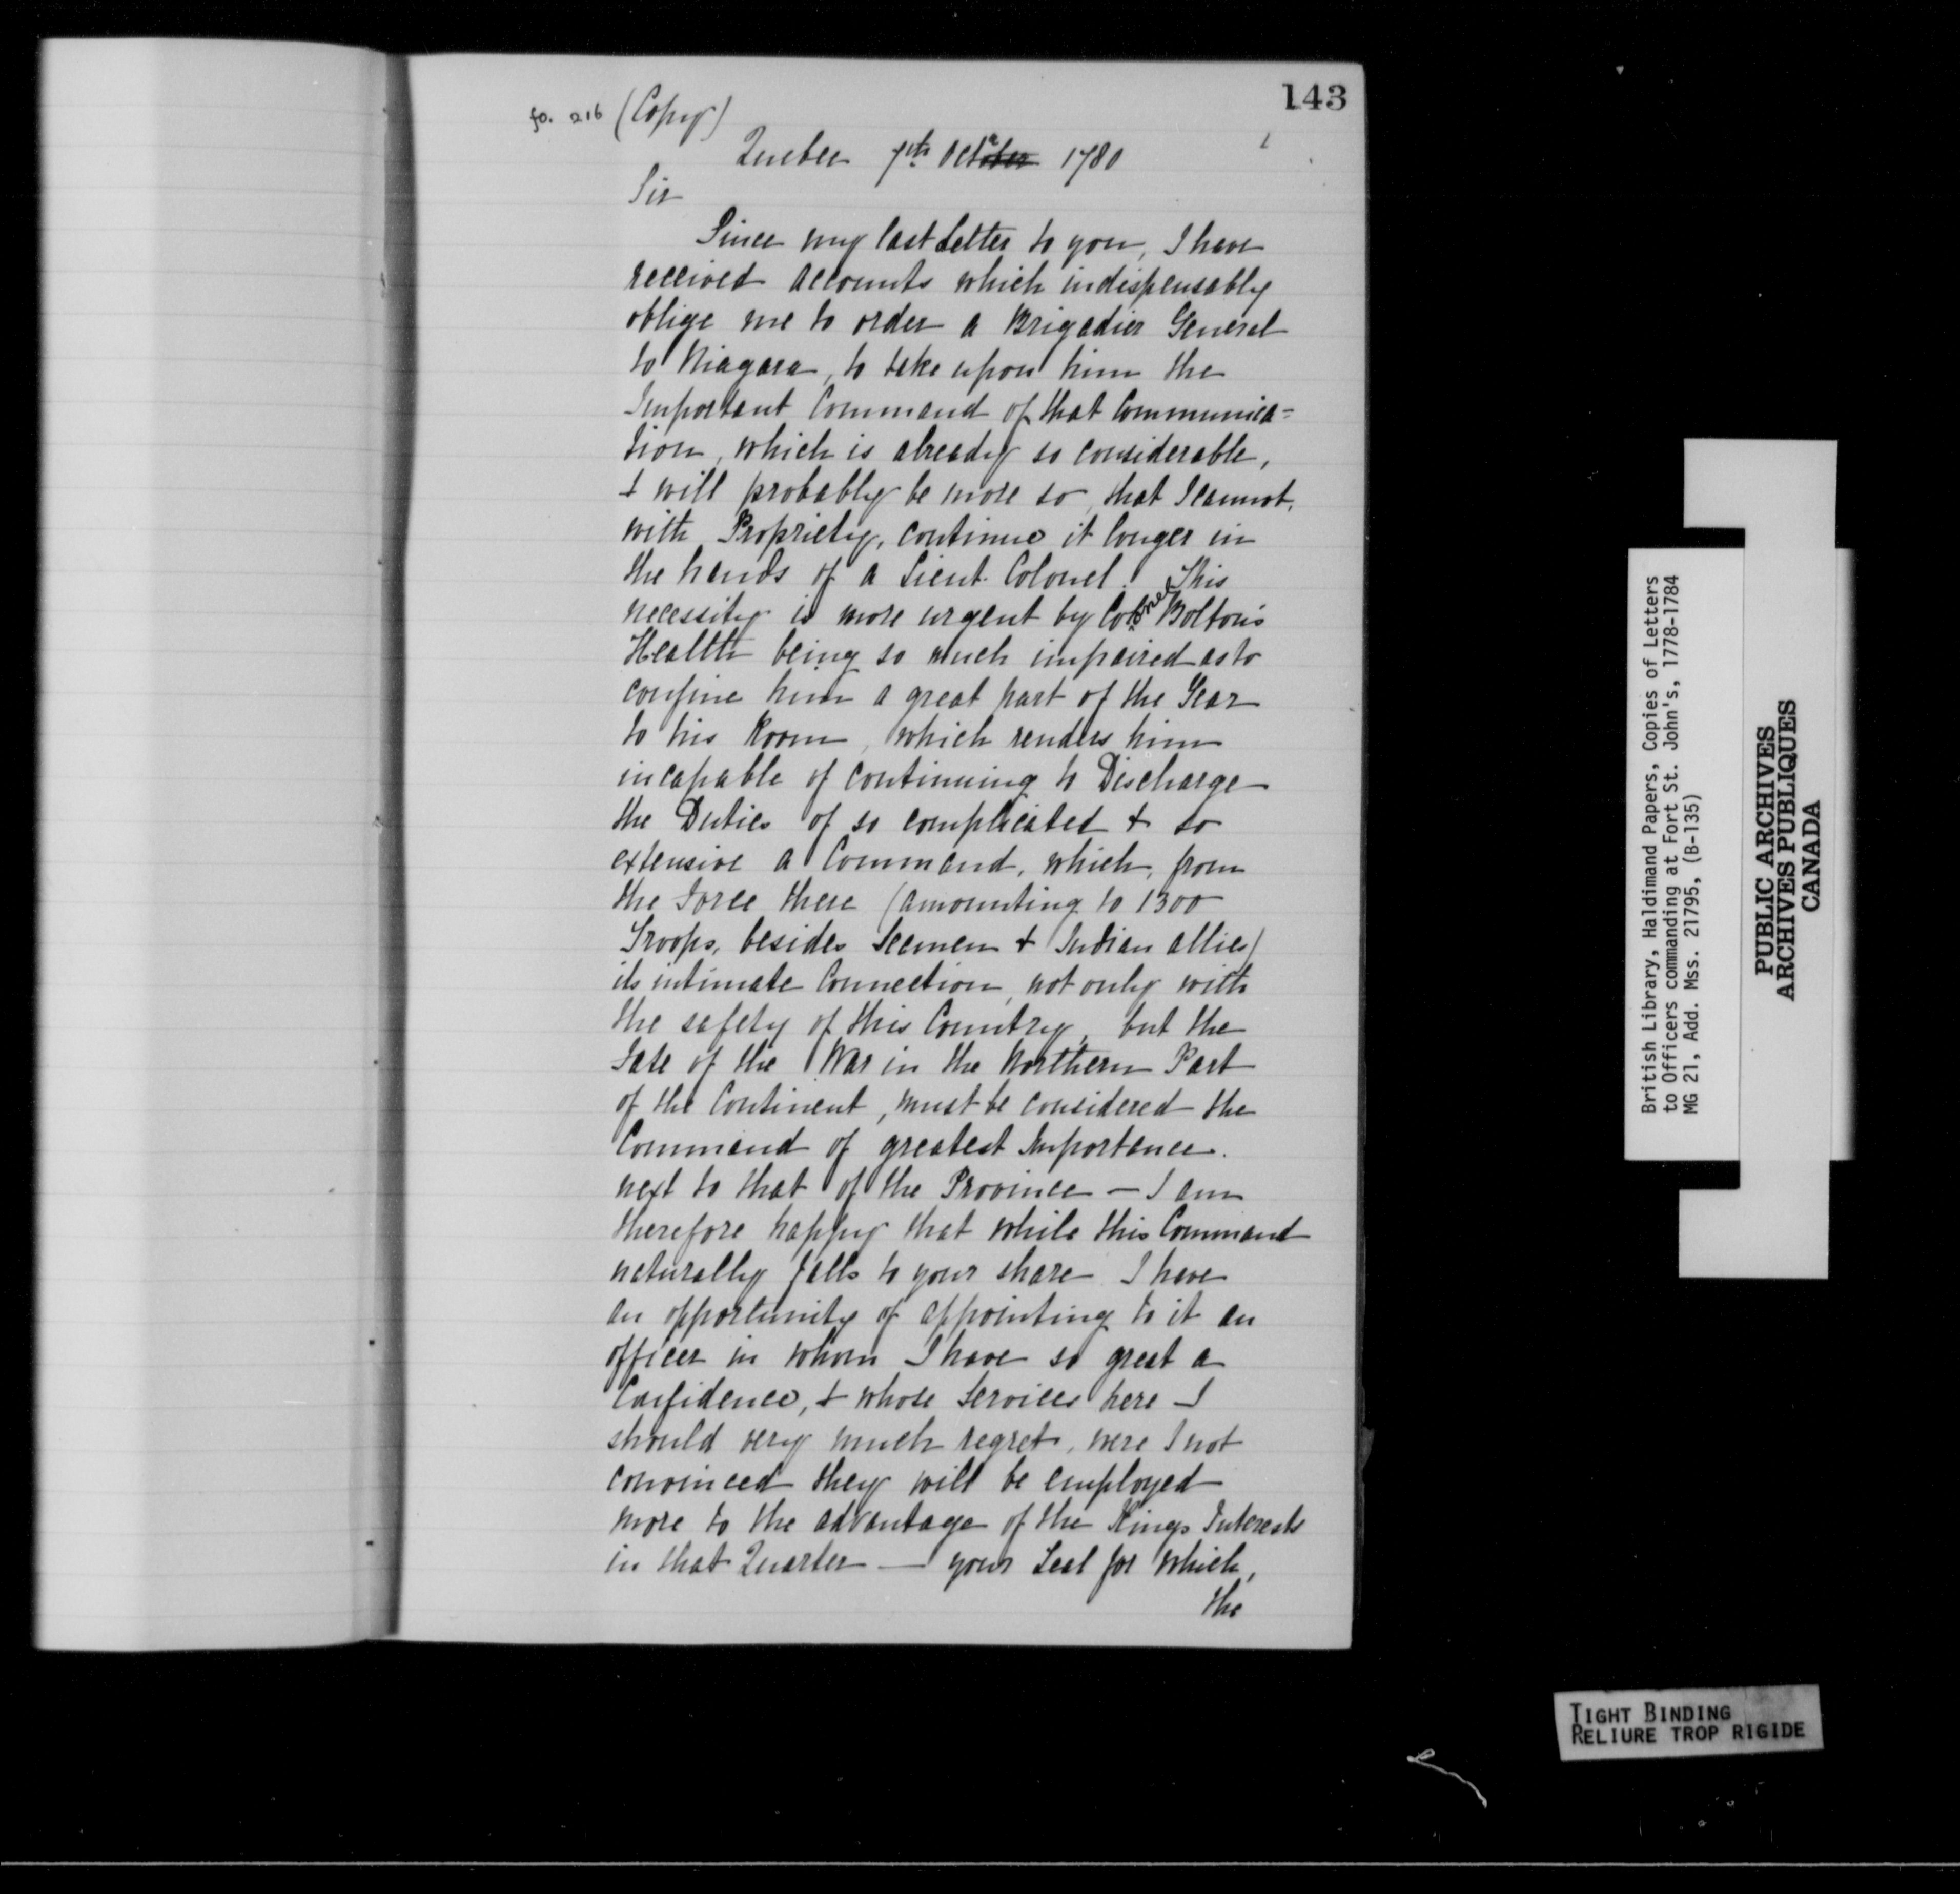 143
fo. 216 (Copy)
Quebec 7th Octr 1780
Sir
Since my last Letter to you, I have
received accounts which indispensably
oblige me to order a Brigadier General
to Niagara, to take upon him the
Important Command of that Communica=
tion, which is already so considerable,
& will probably be more so, that I cannot,
with Propriety, continue it longer in
the hands of a Lieut. Colonel. This
necessity is more urgent by Colonel Bolton's
Health being so much impaired as to
confine him a great part of the Year
to his Room, which renders him
incapable of continuing to Discharge
the Duties of so complicated & so
extensive a Command, which, from
the Force there (amounting to 1300
Troops, besides Seamen & Indian allies)
its intimate Connection, not only with
the safety of this Country, but the
Fate of the War in the Northern Part
of the Continent, must be considered the
Command of greatest Importance.
next to that of the Province — I am
therefore happy that while this Command
naturally falls to your share I have
an opportunity of appointing to it an
officer in whom I have so great a
Confidence, & whose Services here I
should very much regret, were I not
convinced they will be employed
more to the advantage of the Kings Interests
in that Quarter — your Zeal for which,
the
British Library, Haldimand Papers, Copies of Letters
to Officers commanding at Fort St. John's, 1778-1784
MG 21, Add. Mss. 21795, (B-135)
PUBLIC ARCHIVES
ARCHIVES PUBLIQUES
CANADA
TIGHT BINDING
RELIURE TROP RIGIDE